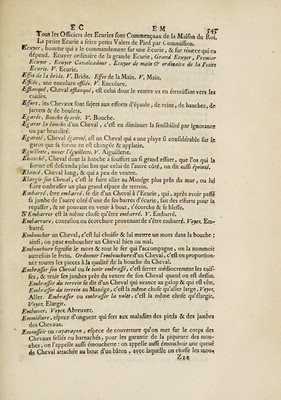 E C E M 545
Tout les Officiers des Ecuries sont Commençaux de la Maison du Roi.
La petite Ecurie a seize petits Valets de Pied par Commission.
Ecuyer, homme qui a le commandement sur une Ecurie, & sur tout ce qui en
dépend. Ecuyer ordinaire de la grande Ecurie, Grand Ecuyer, Premier
Ecuyer, Ecuyer Cavalcadour, Ecuyer de main & ordinaire de la Petite
Ecurie. V. Ecurie.
Effet de la bride. V. Bride. Effet de la Main. V. Main.
Effilée, une encolure effilée. V. Encolure.
Efflanqué, Cheval efflanqué, est celui dont le ventre va en étrecissant vers les
cuisses.
Efforts, les Chevaux sont sujets aux efforts d'épaule, de reins, de hanches, de
jarrets & de boulets.
Egarée. Bouche égarée. V. Bouche.
Egarer la bouche d'un Cheval, c'est en diminuer la sensibilité par ignorance
ou par brutalité.
Egaroté, Cheval égaroté, est un Cheval qui a une playe si considérable sur le
garot que sa forme en est changée & applatie.
Eguillette, nouer l'éguillette. V. Aiguillette.
Ehanché, Cheval dont la hanche a souffert un si grand effort, que l'os qui la
forme est descendu plus bas que celui de l'autre côté, on dit aussi épointé.
Elancé, Cheval long, & qui a peu de ventre.
Elargir son Cheval, c'est le faire aller au Manége plus près du mur, ou lui
faire embrasser un plus grand espace de terrein.
Embarré, être embarré, se dit d'un Cheval à l'Ecurie, qui, après avoir passé
sa jambe de l'autre côté d'une de ses barres d'écurie, fait des efforts pour la
repasser, & ne pouvant en venir à bout, s'écorche & se blesse.
S'Embarrer est la même chose qu'être embarré. V. Embarré.
Embarrure, contusion ou écorchure provenant de s'être embarré. Voyez Embarré.
Emboucher un Cheval, c'est lui choisir & lui mettre un mors dans la bouche;
ainsi, on peut emboucher un Cheval bien ou mal.
Embouchure signifie le mors & tout le fer qui l'accompagne, on la nommoit
autrefois le frein. Ordonner l'embouchure d'un Cheval, c'est en proportionner
toutes les pieces à la qualité de la bouche du Cheval.
Embrasser son Cheval ou le tenir embrassé, c'est serrer médiocrement les cuisses,
& tenir ses jambes près du ventre de son Cheval quand on est dessus.
Embrasser du terrein se dit d'un Cheval qui avance au galop & qui est vîte.
Embrasser du terrein au Manége, c'est la même chose qu'aller large. Voyez
Aller. Embrasser ou embrasser la volte, c'est la même chose qu'élargir.
Voyez Elargir.
Embuver. Voyez Abreuver.
Emmiellure, espece d'onguent qui sert aux maladies des pieds & des jambes
des Chevaux.
Emouchoir ou caparaçon, espece de couverture qu'on met sur le corps des
Chevaux sellés ou harnachés, pour les garantir de la piqueure des mouches,
on l'appelle aussi émouchette: on appelle aussi émouchoir une queuë
de Cheval attachée au bout d'un bâton, avec laquelle on chasse les mou-
Zzz